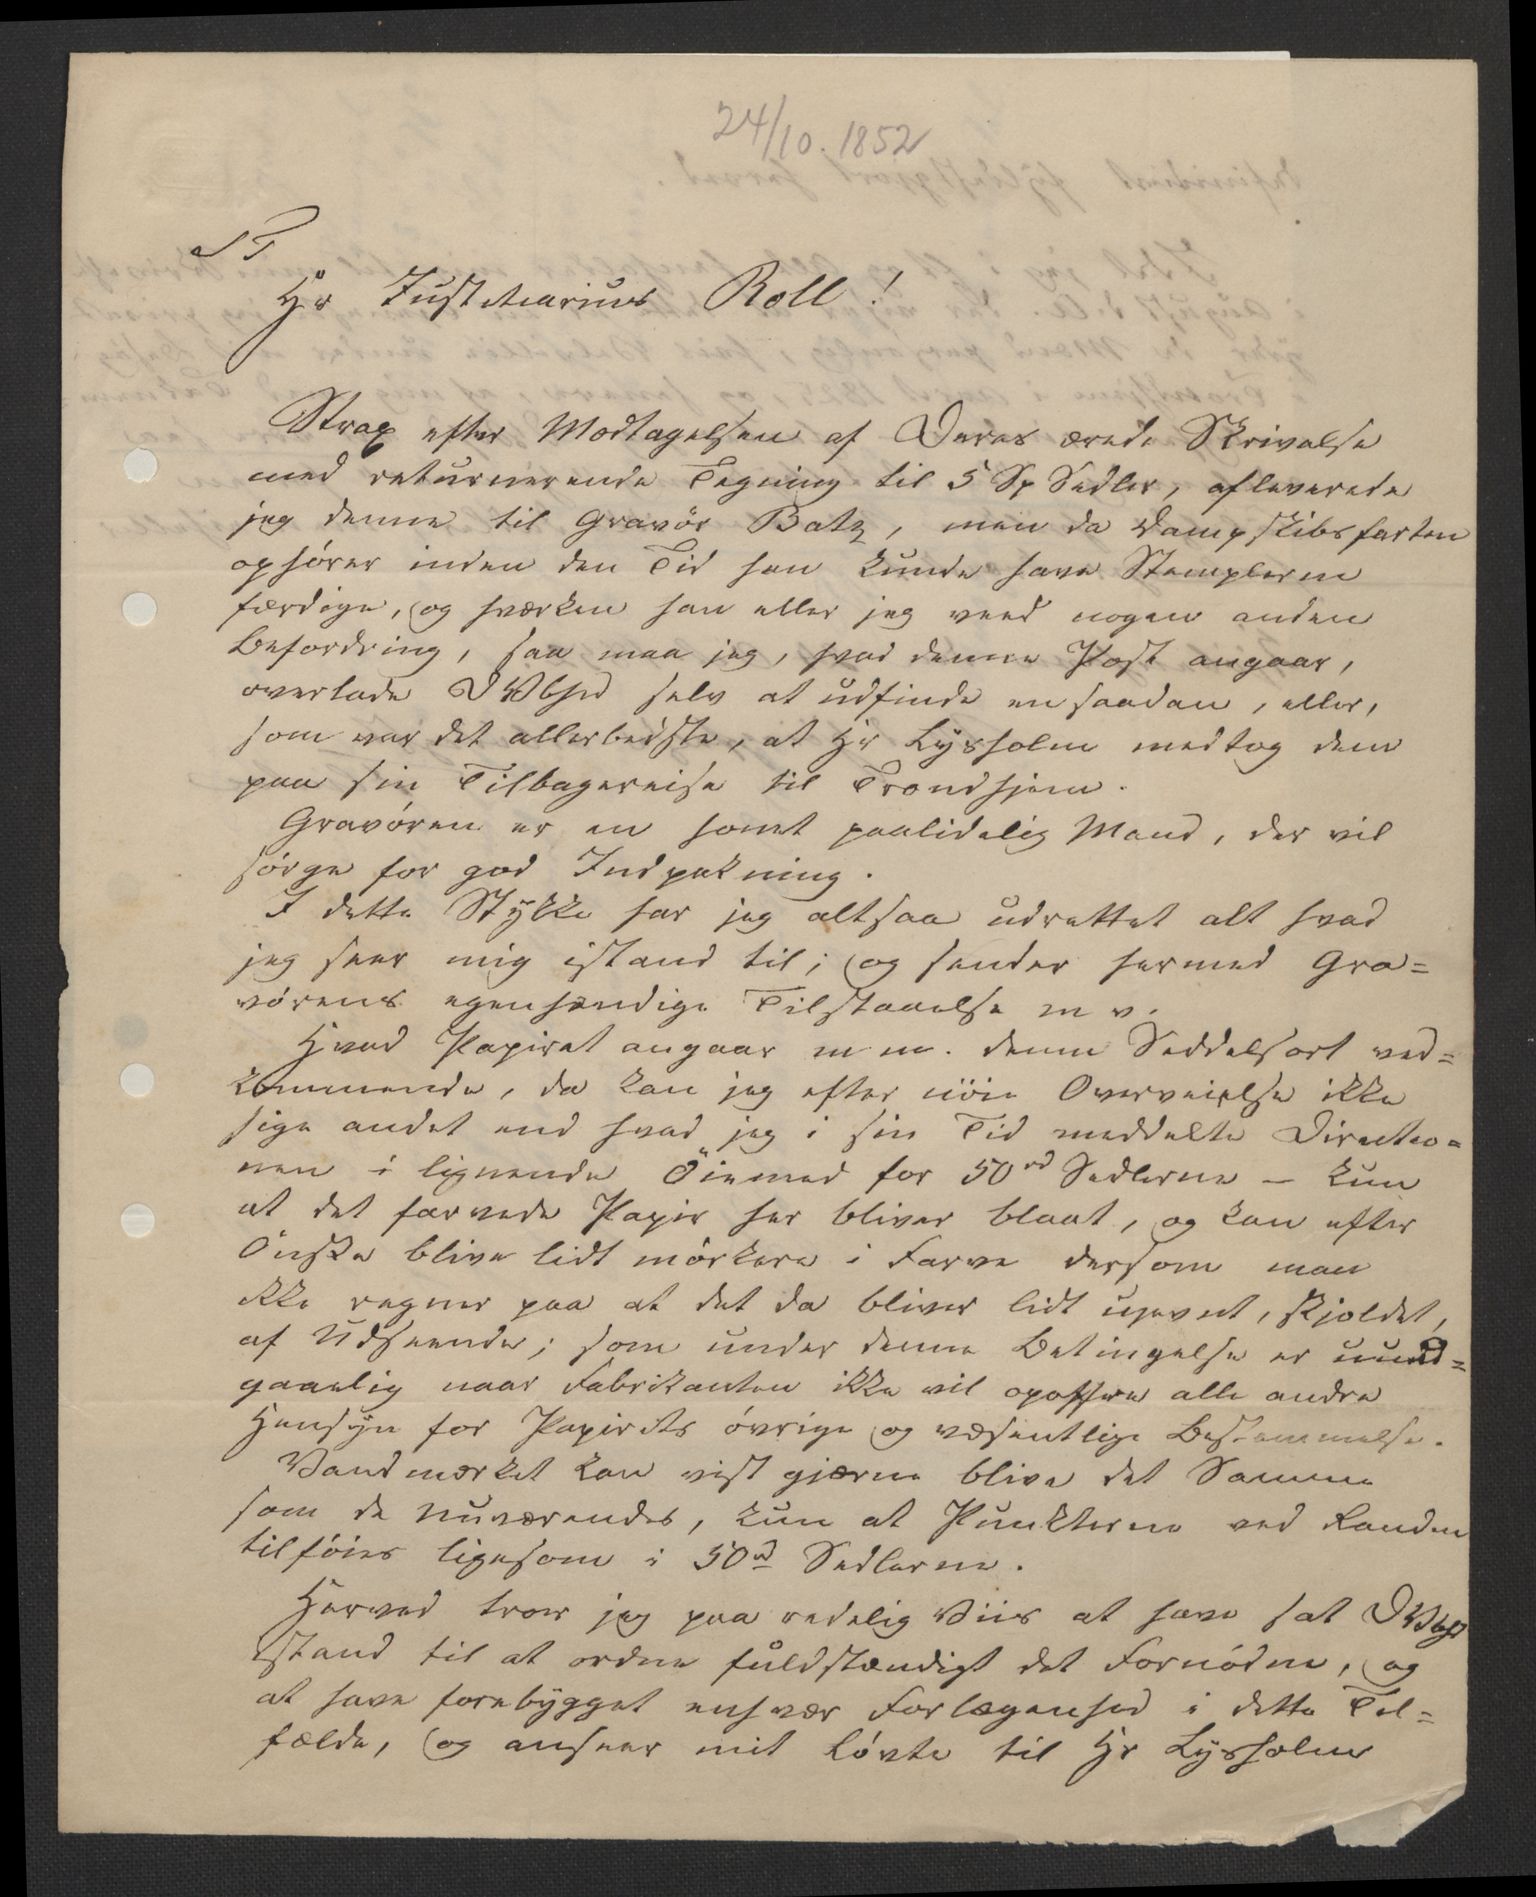 24/10. 1852
S T
Hr Justitiarius Roll!
Strax efter Modtagelsen af Deres ærede Skrivelse
med returnerende Tegning til 5 Sp Sedler, afleverede
jeg denne til Gravör Batz, men da Dampskibsfarten
ophörer inden den Tid han kunde have Stemplerne
færdige, og hværken han eller jeg veed nogen anden
Befordring, saa maa jeg, hvad denne Post angaar,
overlade DVbhed selv at udfinde en saadan, eller,
som var det allerbedste, at Hr Lysholm medtog dem
paa sin Tilbagereise til Trondhjem.
Gravören er en honet paalidelig Mand, der vil
sörge for god Indpakning.
I dette Stykke har jeg altsaa udrettet alt hvad
jeg seer mig istand til; og sender hermed Gra=
vörens egenhændige Tilstaaelse m v.
Hvad Papiret angaar m m. denne Seddelsort ved=
kommende, da kan jeg efter nöie Overveielse ikke
sige andet end hvad jeg i sin Tid meddelte Directio=
nen i lignende Öiemed for 50rd Sedlerne – kun
at det farvede Papir her bliver blaat, og kan efter
Önske blive lidt mörkere i Farve dersom man
ikke regner paa at det da bliver lidt ujevnt, skjoldet,
af Udseende; som under denne Betingelse er uund=
gaaelig naar Fabrikanten ikke vil opoffre alle andre
Hensyn for Papirets övrige og væsentlige Bestemmelse.
Vandmærket kan vist gjærne blive det Samme
som de nuværendes, kun at Punkterne ved Randen
tilföies ligesom i 50rd Sedlerne.
Herved troer jeg paa redelig Viis at have sat DVbhd
istand til at ordne fuldstændigt det Fornödne, og
at have forebygget enhver Forlægenhed i dette Til=
fælde, og anseer mit Lövte til Hr Lysholm